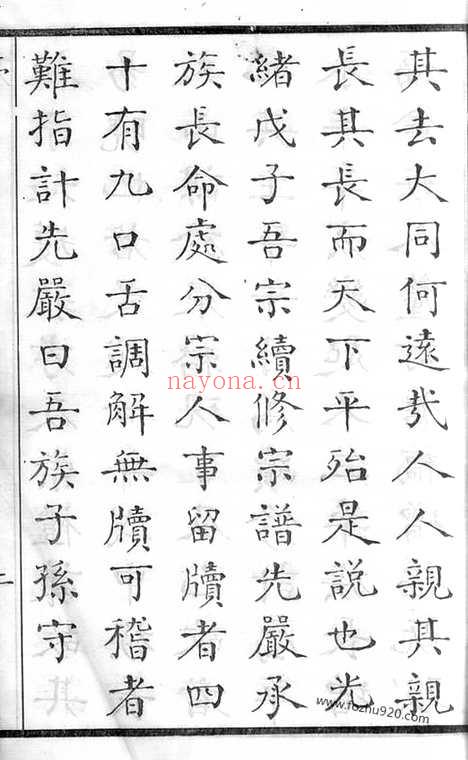 其去大同何遠哉人人親其親
長其長而天下平殆是說也光
緒戊子吾宗續修宗譜先嚴承
族長命處分宗人事留牘者四
十有九口舌調解無牘可稽者
難指計先嚴曰吾族子孫守
nayona.cn
www.fozhu920.com